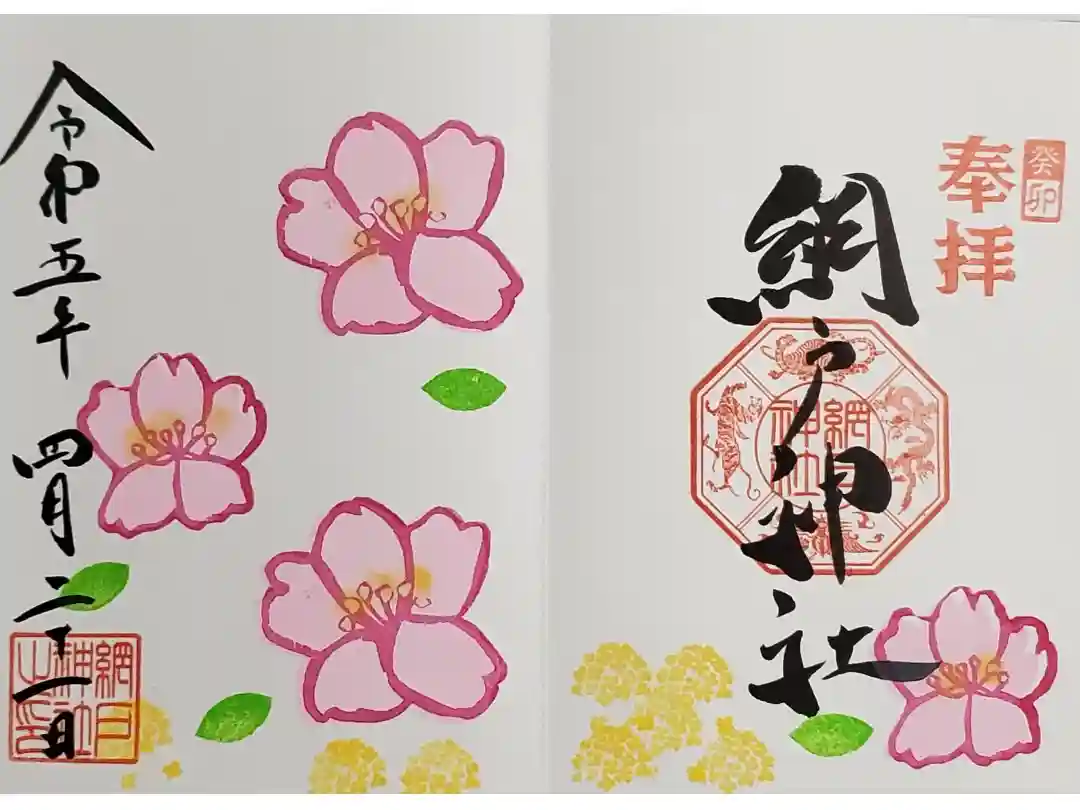 癸卯
奉拝
網戸神社
網戸神社
令和五年四月二十一日
網戸神社之印